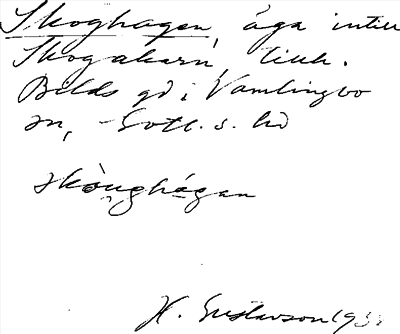 Skoghagen, äga intill
Skogakarn, tillh.
Bilds gd i Vamlingbo
sn, Gotl. s. hd
skòughàgan
H. Gustavson 19